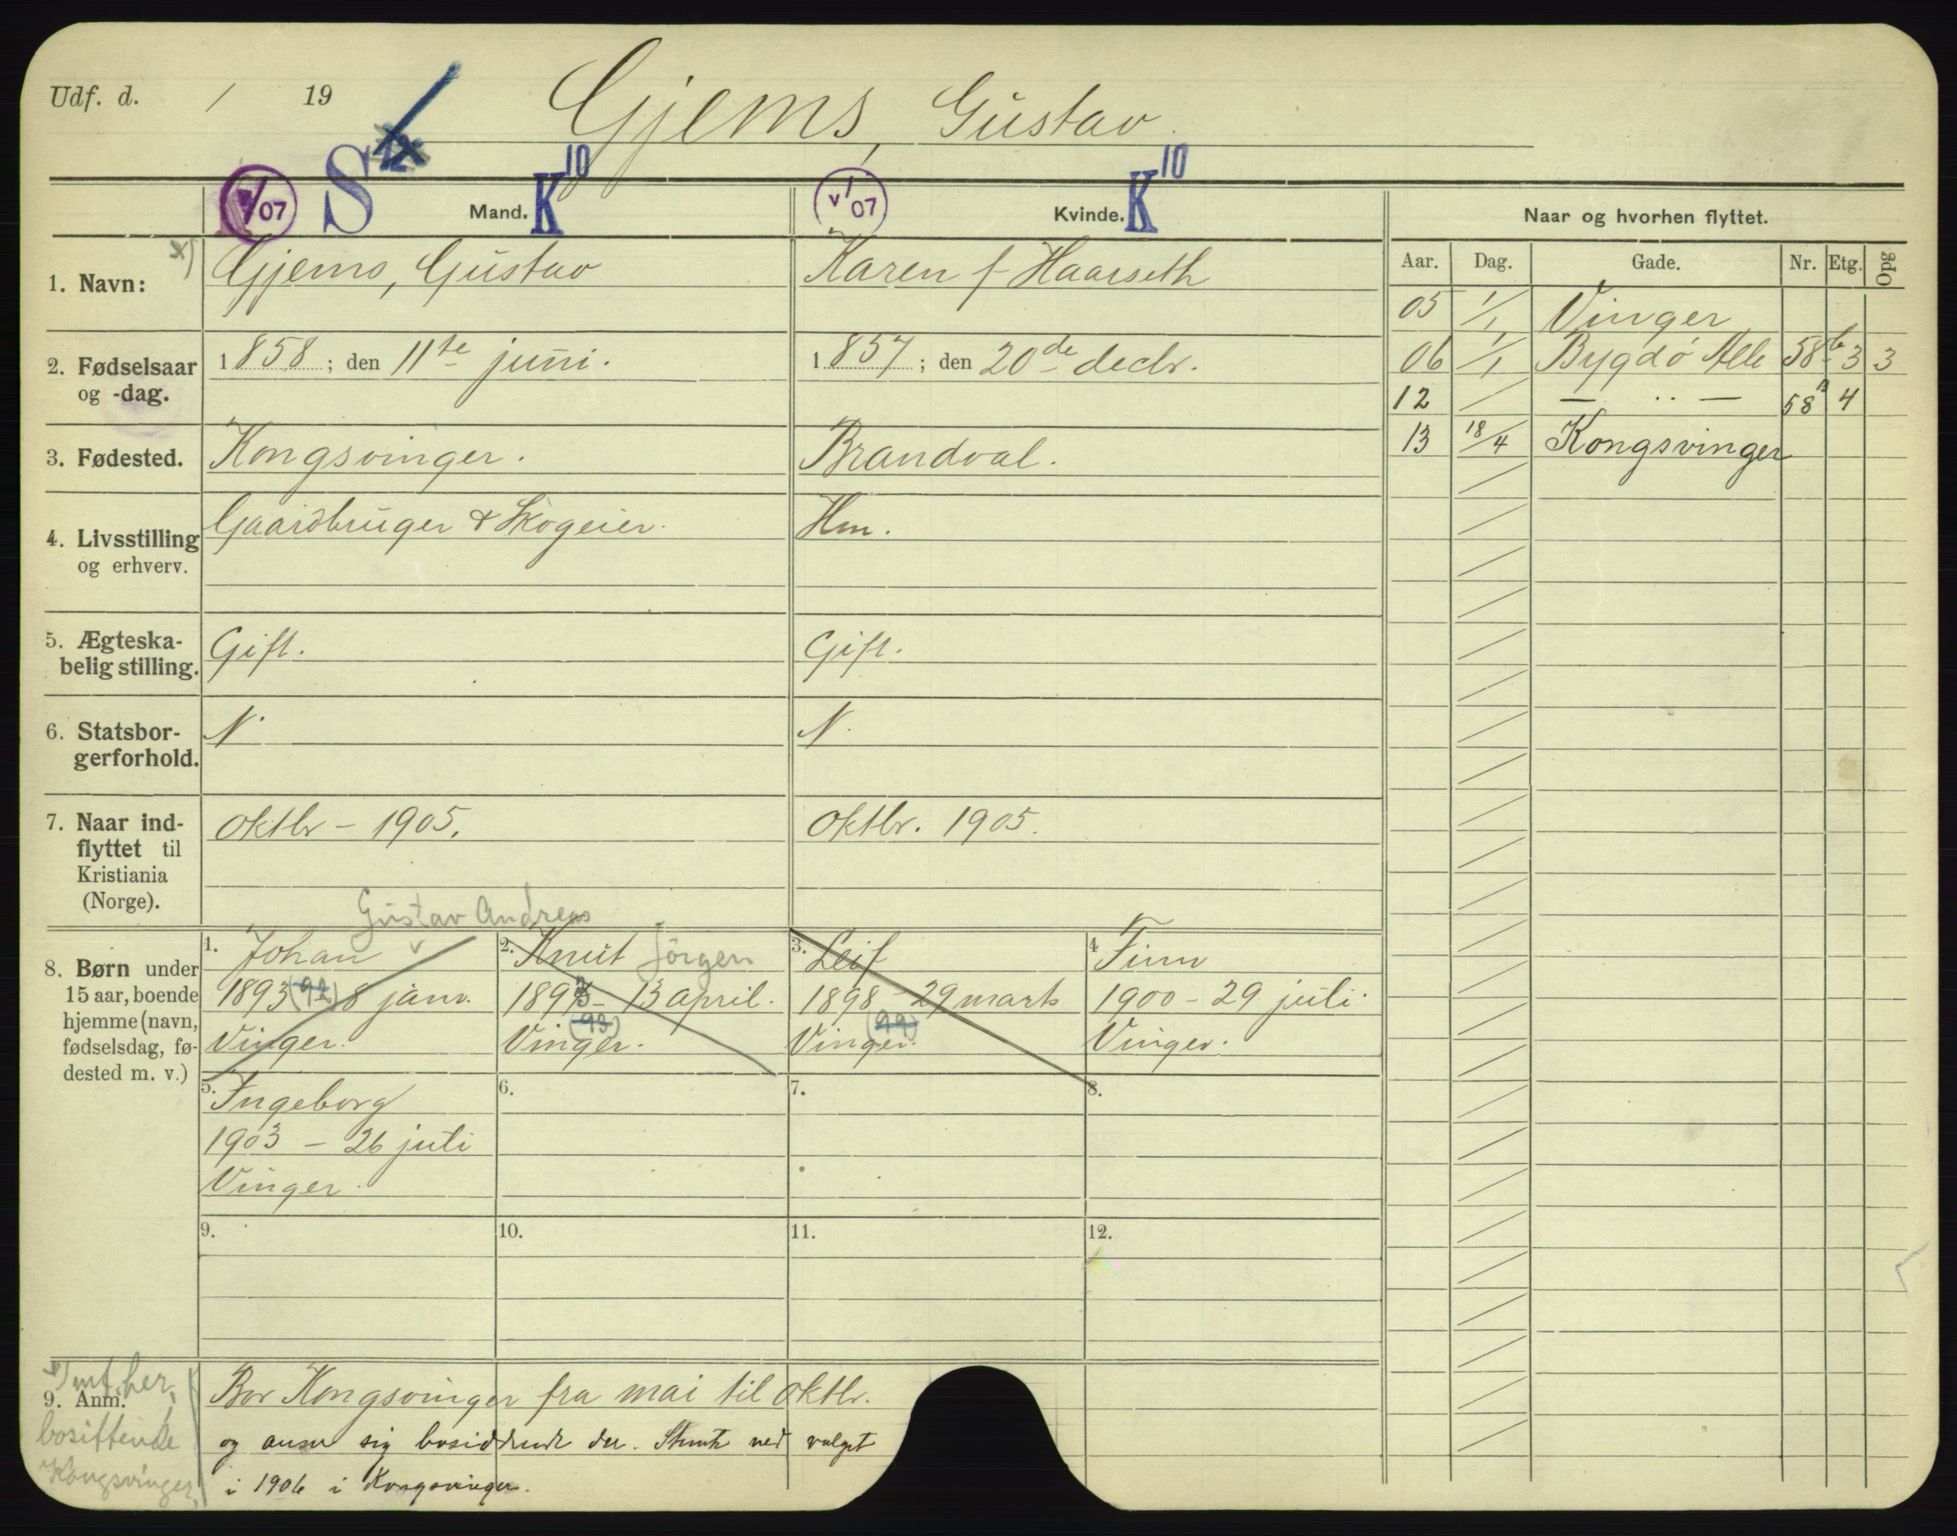 Udf. d. / 19 Gjems, Gustav
V/07 S 12 Mand. K 10 V/07 Kvinde. K 10 Naar og hvorhen flyttet.
Aar. Dag. Gade. Nr. Etg. Opg
1. Navn: x) Gjems, Gustav Karen f. Haarseth
05 1/1 Vinger
2. Fødselsaar
og -dag.
1858; den 11te juni. 1857; den 20de decbr.
06 1/1 Bygdø Alle 58b 3 3
12 — " — 58B 4
13 18/4 Kongsvinger
3. Fødested. Kongsvinger. Brandval.
4. Livsstilling
og erhverv.
Gaardbruger & Skogeier. Hm.
5. Ægteska-
belig stilling.
Gift. Gift.
6. Statsbor-
gerforhold.
N. N.
7. Naar ind-
flyttet til
Kristiania
(Norge).
Oktbr - 1905. Oktbr. 1905.
8. Børn under
15 aar, boende
hjemme (navn,
fødselsdag, fø-
dested m. v.)
Gustav Andreas
1. Johan
1893 (92) 8 janv.
Vinger.
2. Knut Jörgen
1895 - 13 april.
(93)
Vinger.
3. Leif
1898 - 29 marts
(99)
Vinger.
4 Finn
1900 - 29 juli.
Vinger.
5. Ingeborg
1903 - 26 juli
Vinger.
6.
7.
8.
9.
10.
11.
12.
9. Anm.
her,
bosittende
Kongsvinger.
Bor Kongsvinger fra mai til oktbr.
og anser sig bosiddende der. Stemte ved valget
i 1906 i Kongsvinger.